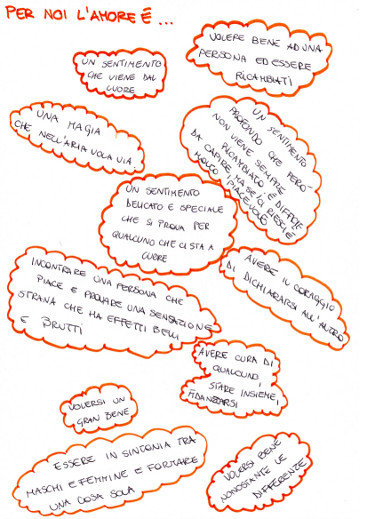 PER NOI L'AMORE É ...
UN SENTIMENTO
CHE VIENE DAL
CUORE
VOLERE BENE AD UNA
PERSONA ED ESSERE
RICAMBIATI
UNA MAGIA
CHE NELL'ARIA VOLA VIA
UN SENTIMENTO
PROFONDO CHE PERÒ
NON VIENE SEMPRE
RICAMBIATO È DIFFICILE
DA CAPIRE, MA SE CI RIESCI È
MOLTO PIACEVOLE
UN SENTIMENTO
DELICATO E SPECIALE
CHE SI PROVA PER
QUALCUNO CHE CI STA A
CUORE
AVERE IL CORAGGIO
DI DICHIARARSI ALL'ALTRO
INCONTRARE UNA PERSONA CHE
PIACE E PROVARE UNA SENSAZIONE
STRANA CHE HA EFFETTI BELLI
E BRUTTI
AVERE CURA DI
QUALCUNO,
STARE INSIEME,
FIDANZARSI
VOLERSI UN
GRAN BENE
ESSERE IN SINTONIA TRA
MASCHI E FEMMINE E FORMARE
UNA COSA SOLA
VOLERSI BENE
NONOSTANTE LE
DIFFERENZE